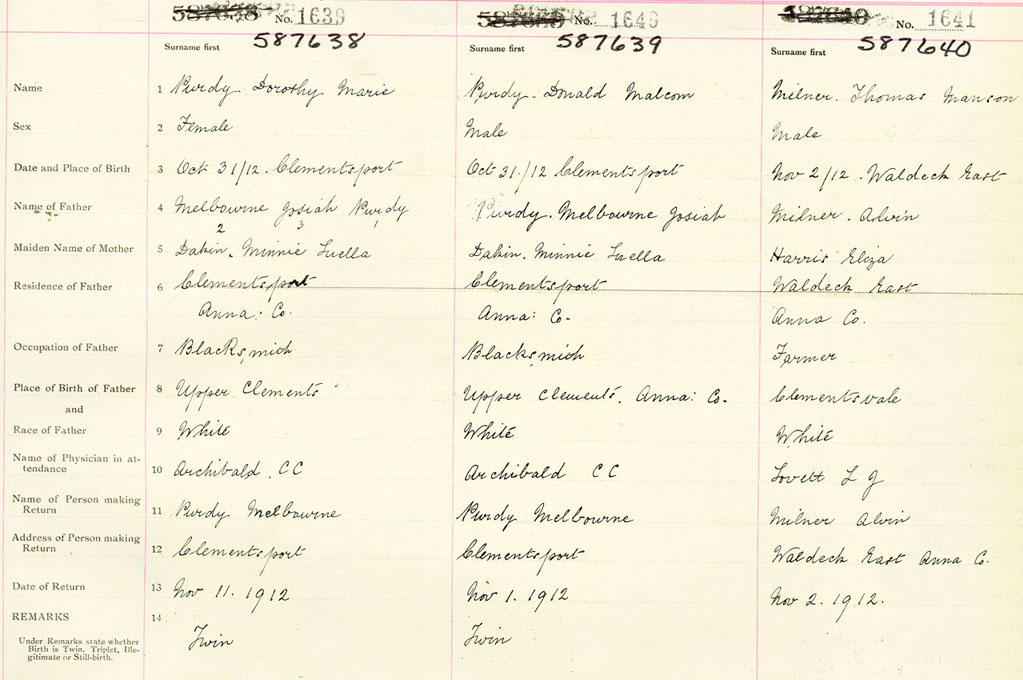 No. 1639 No. 1640 No. 1641
587638 587639 587640
Surname first Surname first Surname first
Name 1 Purdy. Dorothy Marie Purdy. Donald Malcom Milner. Thomas Manson
Sex 2 Female Male Male
Date and Place of Birth 3 Oct 31/12. Clementsport Oct 31./12 Clementsport Nov 2/12. Waldeck East
Name of Father 4 Melbourne Josiah Purdy Purdy. Melbourne Josiah Milner. Alvin
2 3
Maiden Name of Mother 5 Dakin. Minnie Luella Dakin. Minnie Luella Harris Eliza
Residence of Father 6 Clementsport Clementsport Waldeck East
Anna: Co. Anna: Co. Anna Co.
Occupation of Father 7 Blacksmith Blacksmith Farmer
Place of Birth of Father 8 Upper Clements Upper Clements. Anna: Co. Clementsvale
and
Race of Father 9 White White White
Name of Physician in at-
tendance 10 Archibald. C C Archibald C C Lovett L J
Name of Person making
Return 11 Purdy Melbourne Purdy Melbourne Milner Alvin
Address of Person making
Return 12 Clementsport Clementsport Waldeck East Anna Co.
Date of Return 13 Nov 11. 1912 Nov 1. 1912 Nov 2. 1912.
REMARKS 14
Under Remarks state whether
Birth is Twin, Triplet, Ille-
gitimate or Still-birth.
Twin Twin